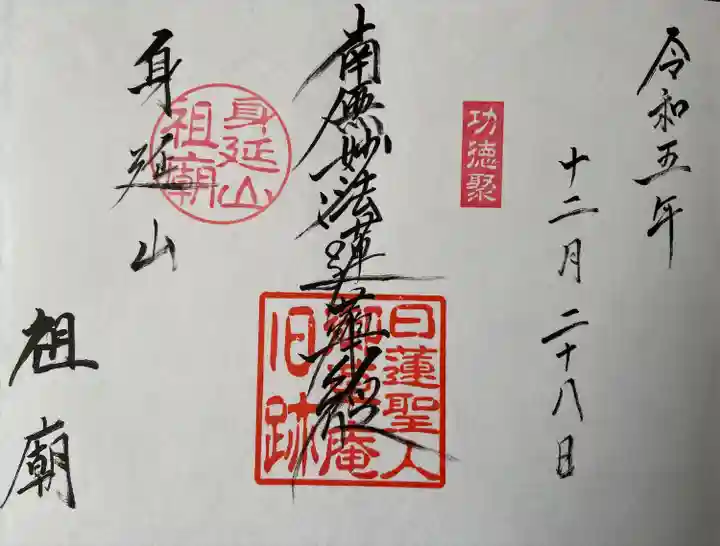 令和五年
十二月二十八日
功徳聚
南無妙法蓮華経
日蓮聖人
御草庵
旧跡
身延山
身延山
祖廟
祖廟